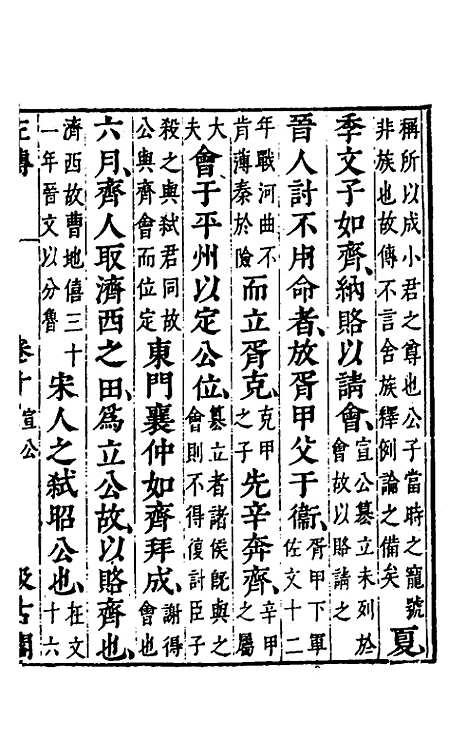 稱所以成小君之尊也公子當時之寵號
非族也故傳不言舍族釋例論之備矣
夏
季文子如齊納賂以請會
宣公簒立未列於
會故以賂請之
晉人討不用命者放胥甲父于衞
胥甲下軍
佐文十二
年戰河曲不
肯薄秦於險
而立胥克
克甲
之子
先辛奔齊
辛甲
之屬
大
夫
會于平州以定公位
簒立者諸侯旣與之
會則不得復討臣子
殺之與弑君同故
公與齊會而位定
東門襄仲如齊拜成
謝得
會也
六月齊人取濟西之田爲立公故以賂齊也
濟西故曹地僖三十
一年晉文以分魯
宋人之弑昭公也
在文
十六
左傳
卷十
宣公
汲古閣